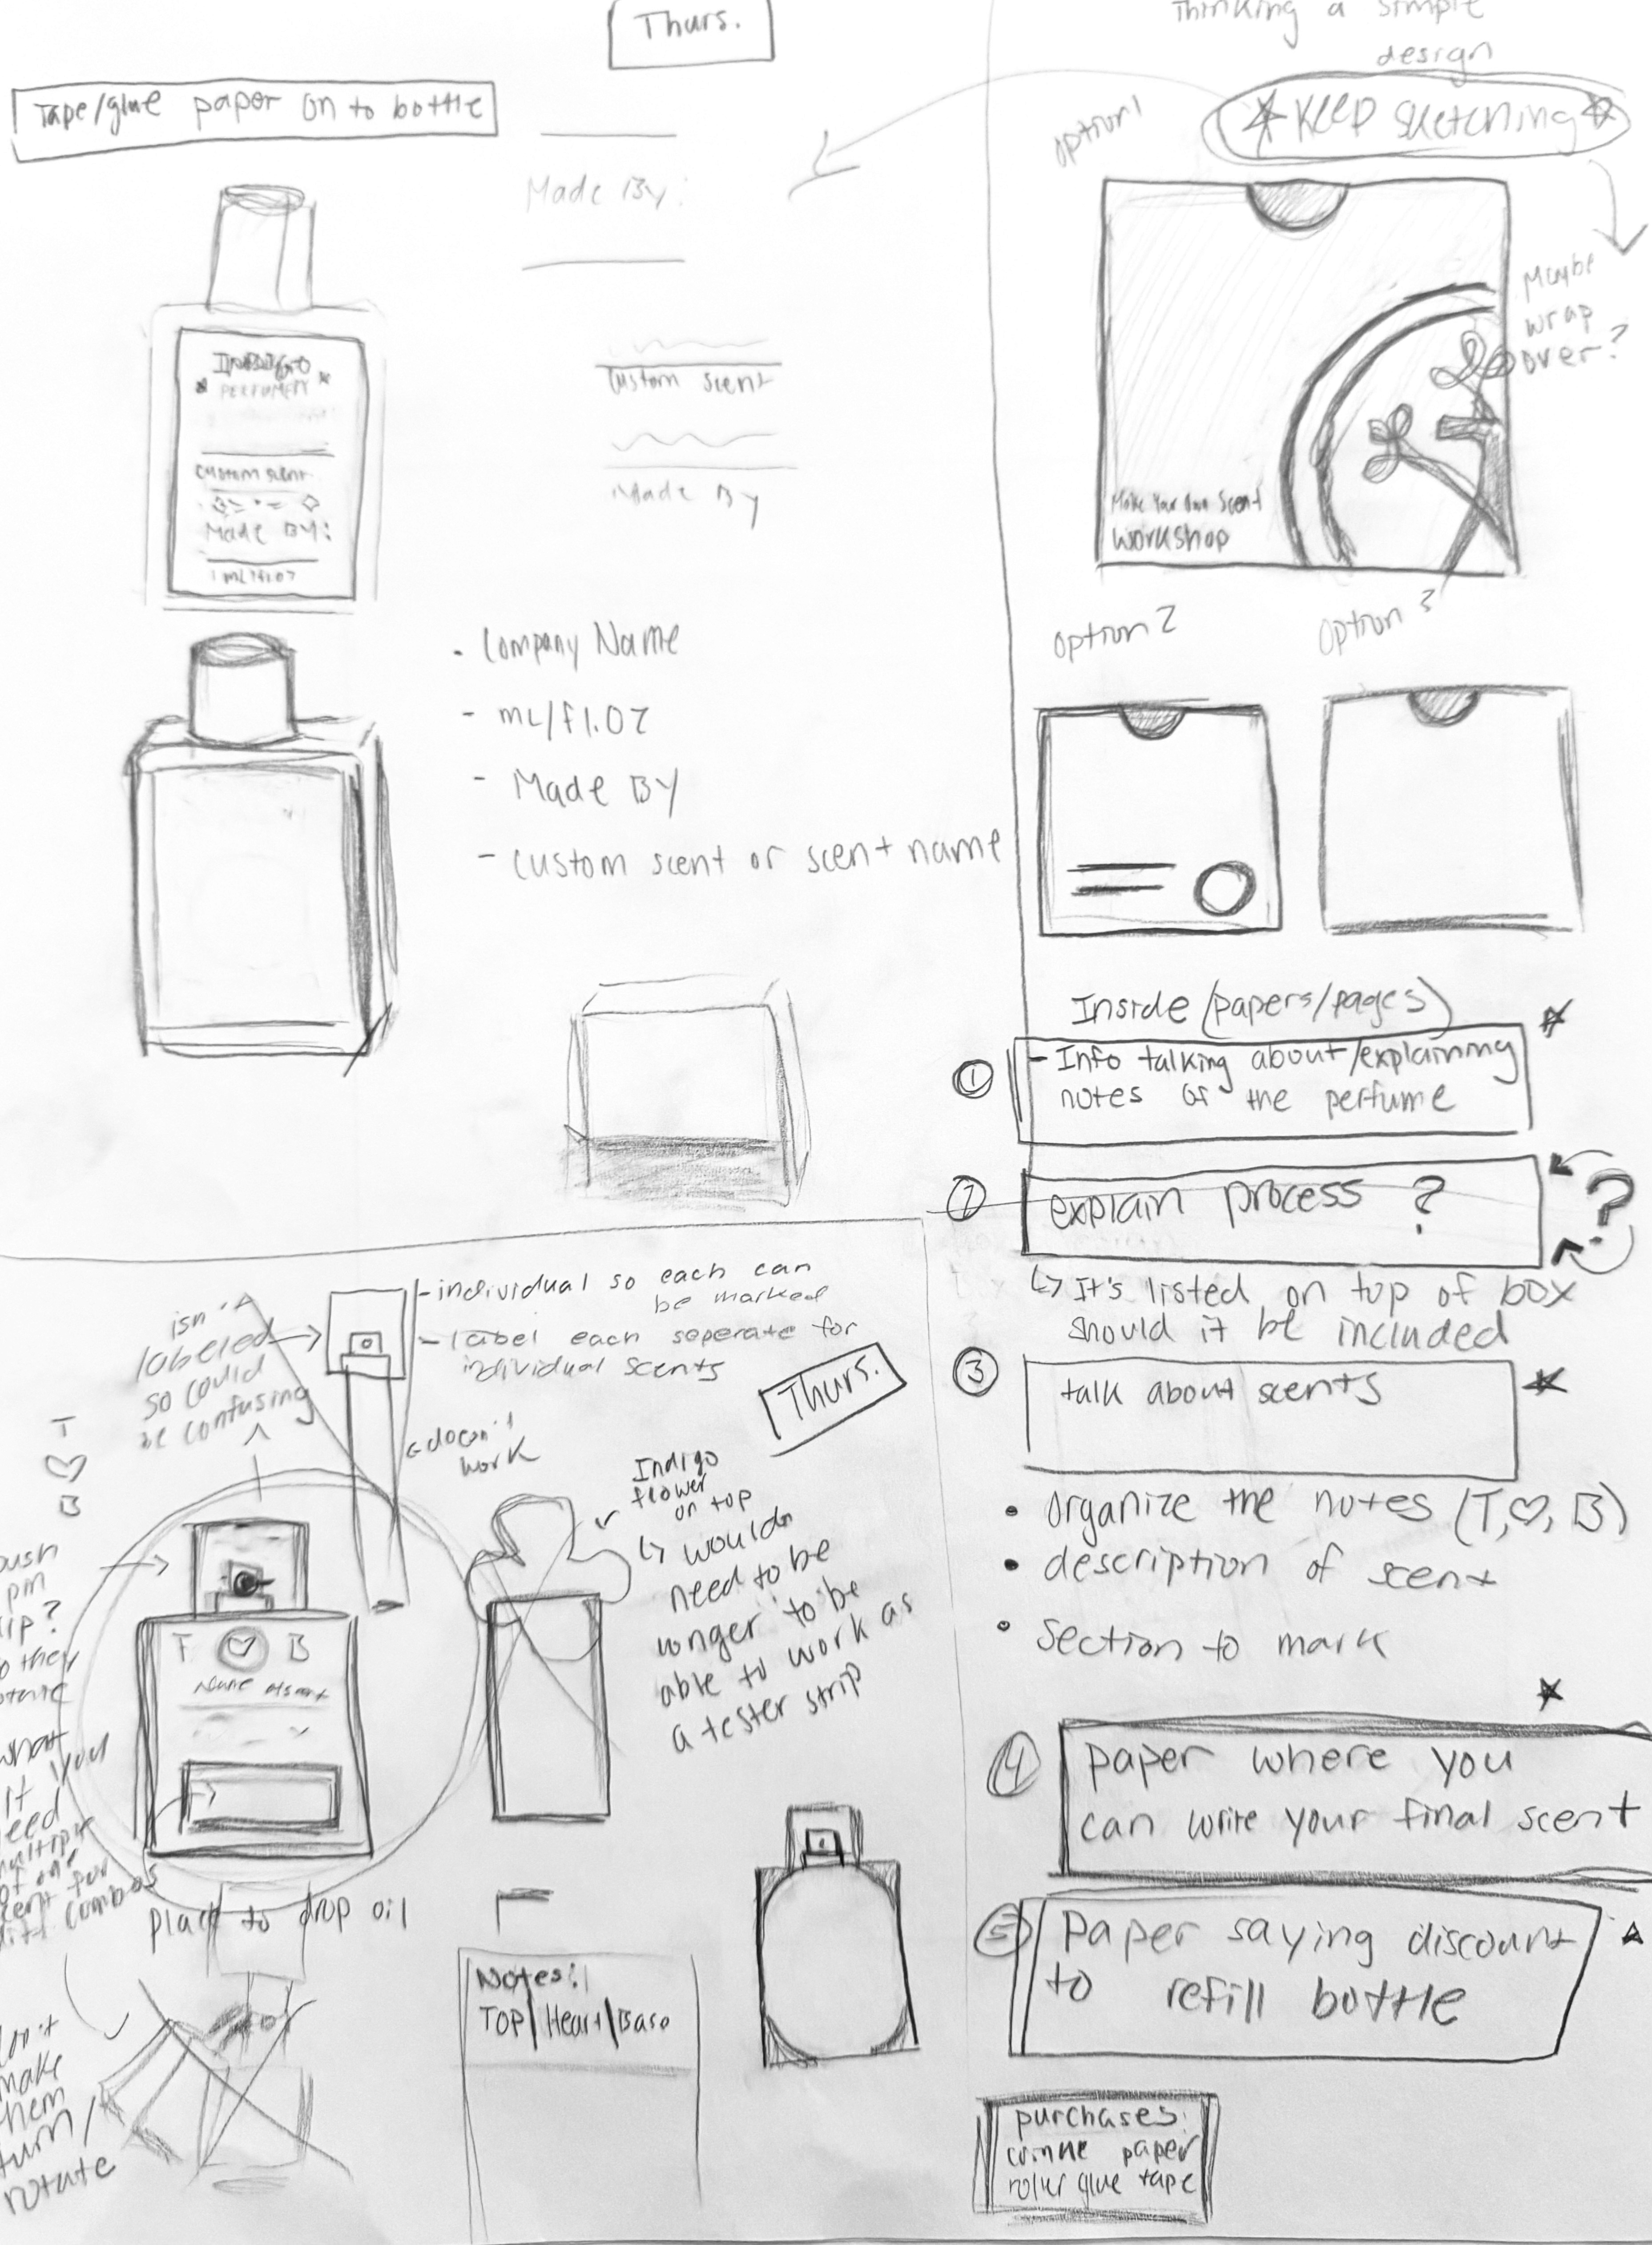 Thurs.
Tape/glue paper on to bottle
Made By:
Custom scent
Made By
INDIGO
PERFUMERY
custom scent
Made By:
1 mL/fl.oz
- Company Name
- mL/fl.oz
- Made By
- custom scent or scent name
Thinking a simple
design
Keep sketching
Option 1
Maybe
wrap
over?
Make Your Own Scent
Workshop
Option 2
Option 3
Inside (papers/pages)
1
- Info talking about/explaining
notes of the perfume
2
explain process ?
?
↳ It's listed on top of box
should it be included
3
talk about scents
• organize the notes (T,♡, B)
• description of scent
• Section to mark
4
paper where you
can write your final scent
5
Paper saying discount
to refill bottle
purchases:
crinkle paper
roller glue tape
isn't
labeled
so could
be confusing
- individual so each can
be marked
- label each seperate for
individual scents
Thurs.
doesn't
work
T
♡
B
Indigo
flower
on top
↳ would
need to be
longer to be
able to work as
a tester strip
push
pin
?
they
T ♡ B
Name of scent
what
if you
need
multiple
of one
scent for
combos
place to drop oil
make
them
turn/
rotate
Notes:
TOP/Heart/Base